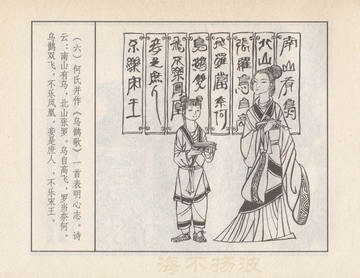 南山有烏
北山
張羅烏自高
飛羅當奈何
烏鵲雙
飛不樂鳳凰
妾是庶人
不樂宋王
（六）何氏并作《乌鹊歌》一首表明心志。诗
云：南山有乌，北山张罗。乌自高飞，罗当奈何。
乌鹊双飞，不乐凤凰。妾是庶人，不乐宋王。
海不扬波